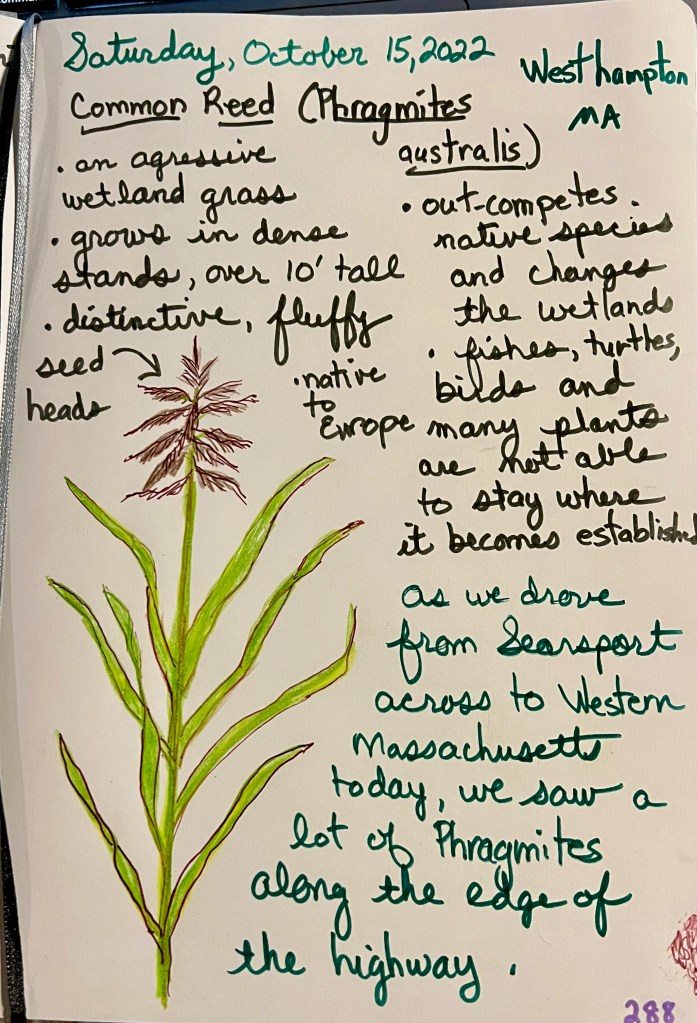 Saturday, October 15, 2022
Westhampton
MA
Common Reed (Phragmites
australis)
• an agressive
wetland grass
• grows in dense
stands, over 10' tall
• distinctive, fluffy
seed
heads
• native
to
Europe
• out-competes
native species
and changes
the wetlands
• fishes, turtles,
birds and
many plants
are not able
to stay where
it becomes established
as we drove
from Searsport
across to Western
Massachusetts
today, we saw a
lot of Phragmites
along the edge of
the highway.
288